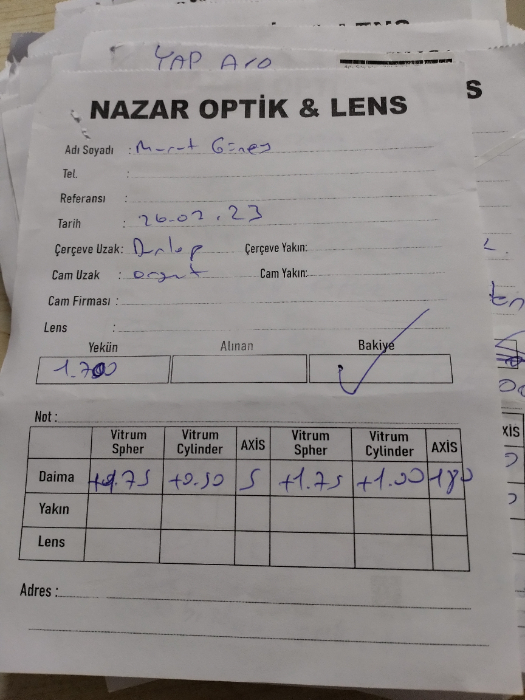 YAP
NAZAR OPTİK & LENS
Adı Soyadı : Murat Güneş
Tel. :
Referansı :
Tarih : 26.02.23
Çerçeve Uzak: Dunlop Çerçeve Yakın:
Cam Uzak : Cam Yakın:
Cam Firması :
Lens :
Yekün Alınan Bakiye
1.700
Not :
Vitrum Spher Vitrum Cylinder AXİS Vitrum Spher Vitrum Cylinder AXİS
Daima +0.50 5 +1.75 +1.00 180
Yakın
Lens
Adres :